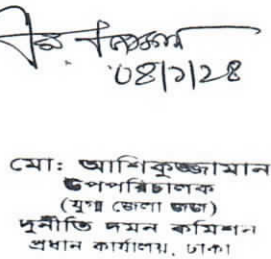 ০৪|১|২৪
মোঃ আশিকুজ্জামান
উপপরিচালক
(যুগ্ম জেলা জজ)
দুর্নীতি দমন কমিশন
প্রধান কার্যালয়, ঢাকা